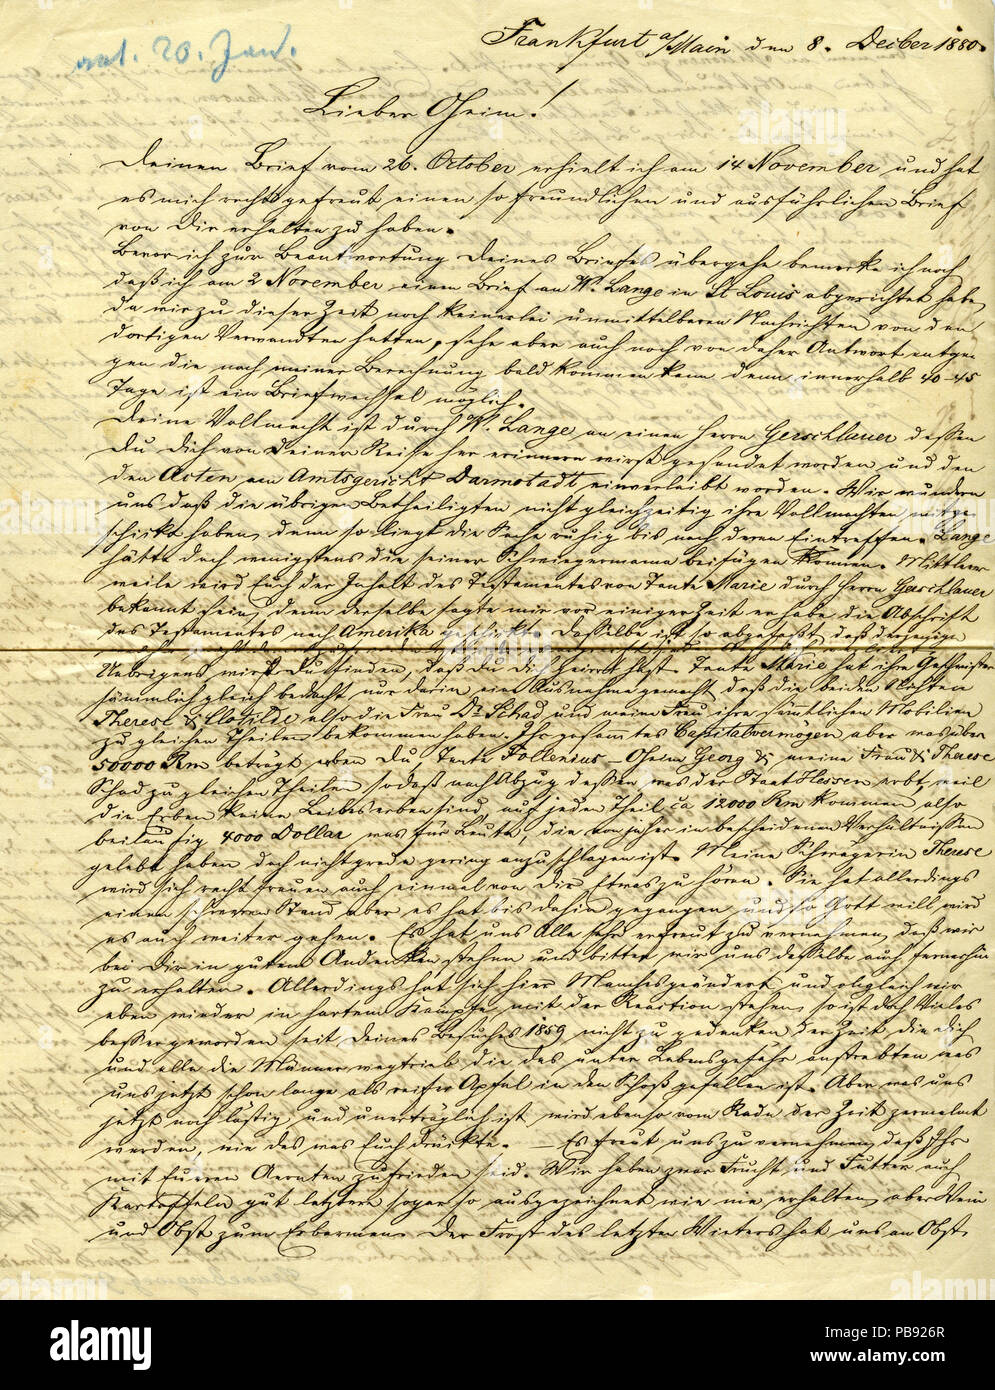 ant. 20. Jan.
Frankfurt a/Main den 8. Decber 1880.
Lieber Oheim!
Deinen Brief vom 26. October erhielt ich am 14 November und hat
es mich recht gefreut einen so freundlichen und ausführlichen Brief
von Dir erhalten zu haben.
Bevor ich zur Beantwortung Deines Briefes übergehe bemerke ich noch,
daß ich am 2 November einen Brief an W. Lange in St Louis abgerichtet habe,
da wir zu dieser Zeit noch keinerlei unmittelbaren Nachrichten von den
dortigen Verwandten hatten, sehe aber auch noch von daher Antwort entge-
gen die nach meiner Berechnung bald kommen kann denn innerhalb 40-45
Tage ist ein Briefwechsel möglich.
Deine Vollmacht ist durch W. Lange an einen Herrn Gerschlauer dessen
Du Dich von Deiner Reise her erinnern wirst gesendet worden und den
den Acten am Amtsgericht Darmstadt einverleibt worden. Wir wundern
uns daß die übrigen Betheiligten nicht gleichzeitig ihre Vollmachten mitge-
schickt haben, denn so liegt die Sache ruhig bis nach deren Eintreffen. Lange
hätte doch wenigstens die seiner Schwiegermama beifügen können. Mittler-
weile wird Euch der Inhalt des Testamentes von Tante Marie durch Herrn Gerschlauer
bekannt sein, denn derselbe sagte mir vor einiger Zeit er habe die Abschrift
des Testamentes nach Amerika geschickt. Dasselbe ist so abgefaßt, daß derjenige
Uebrigens wirst Du finden, daß Du Dich Tante Marie hat ihre Geschwister
sämmtlich gleich bedacht nur darin eine Ausnahme gemacht daß die beiden Nichten
Therese & Clotilde also die Frau Dr Schad und meine Frau ihre sämtlichen Mobilien
zu gleichen Theilen bekommen haben. Ihr gesammtes Capitalvermögen aber was über
50000 Rm beträgt erben Du, Tante Follenius – Oheim Georg & meine Frau & Therese
Schad zu gleichen Theilen, so daß nach Abzug dessen, was der Staat Hessen erbt, weil
die Erben keine Leibeserben sind, auf jeden Theil ca 12000 Rm kommen also
beiläufig 4000 Dollar was für Leute, die von jeher in bescheidenen Verhältnissen
gelebt haben doch nicht grade gering anzuschlagen ist. Meine Schwägerin Therese
wird sich recht freuen auch einmal von Dir Etwas zu hören. Sie hat allerdings
einen schweren Stand aber es hat bis dahin gegangen und so Gott will wird
es auch weiter gehen. Es hat uns Alle sehr erfreut zu vernehmen, daß wir
bei Dir in gutem Andenken stehen und bitten wir uns dasselbe auch fernerhin
zu erhalten. Allerdings hat sich hier Manches geändert und obgleich wir
eben wieder in hartem Kampfe mit der Reaction stehen, so ist doch Vieles
besser geworden seit Deines Besuches 1859 nicht zu gedenken der Zeit die Dich
und alle die Männer wegtrieb die das unter Lebensgefahr anstrebten was
uns jetzt schon lange als reifer Apfel in den Schoß gefallen ist. Aber was uns
jetzt noch lästig und unerträglich ist wird ebenso vom Rade der Zeit zermalmt
werden, wie das was Euch drückte. — Es freut uns zu vernehmen, daß Ihr
mit Eueren Aernten zufrieden seid. Wir haben zwar Frucht und Futter auch
Kartoffeln gut letztere sogar so ausgezeichnet wie nie erhalten, aber Wein
und Obst zum Erbarmen. Der Frost des letzten Winters hat uns an Obst,
alamy
Image ID: PB926R
www.alamy.com